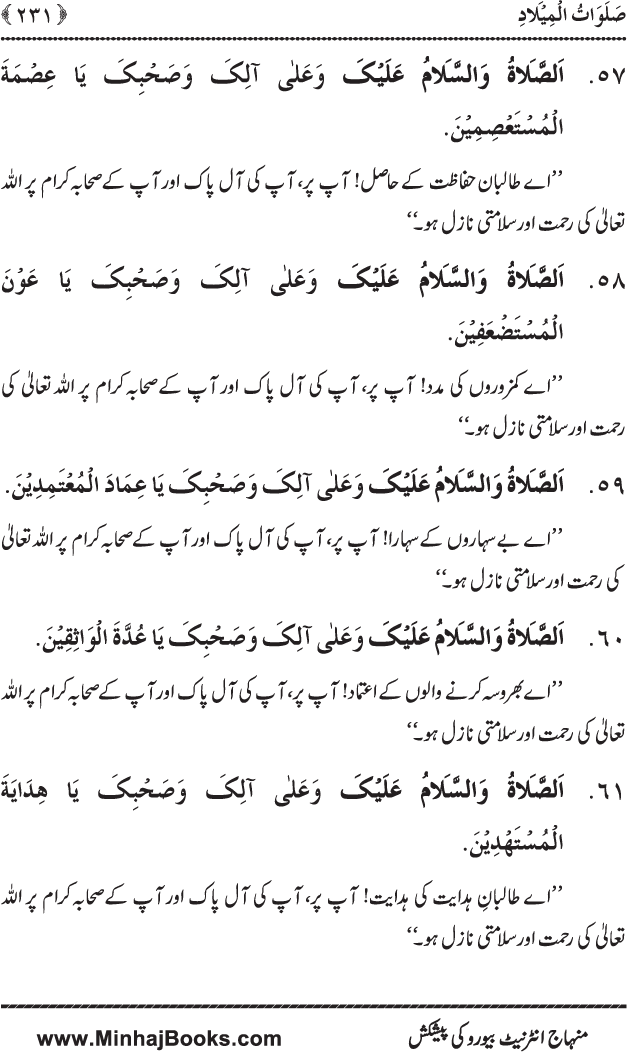 صَلَوَاتُ الْمِيْلَادِ ﴿٢٣١﴾
٥٧. اَلصَّلَاةُ وَالسَّلَامُ عَلَيْکَ وَعَلٰی آلِکَ وَصَحْبِکَ يَا عِصْمَةَ
الْمُسْتَعْصِمِيْنَ.
’’اے طالبان حفاظت کے حاصل! آپ پر، آپ کی آل پاک اور آپ کے صحابہ کرام پر اللہ
تعالیٰ کی رحمت اور سلامتی نازل ہو۔‘‘
٥٨. اَلصَّلَاةُ وَالسَّلَامُ عَلَيْکَ وَعَلٰی آلِکَ وَصَحْبِکَ يَا عَوْنَ
الْمُسْتَضْعَفِيْنَ.
’’اے کمزوروں کی مدد! آپ پر، آپ کی آل پاک اور آپ کے صحابہ کرام پر اللہ تعالیٰ کی
رحمت اور سلامتی نازل ہو۔‘‘
٥٩. اَلصَّلَاةُ وَالسَّلَامُ عَلَيْکَ وَعَلٰی آلِکَ وَصَحْبِکَ يَا عِمَادَ الْمُعْتَمِدِيْنَ.
’’اے بے سہاروں کے سہارا! آپ پر، آپ کی آل پاک اور آپ کے صحابہ کرام پر اللہ تعالیٰ
کی رحمت اور سلامتی نازل ہو۔‘‘
٦٠. اَلصَّلَاةُ وَالسَّلَامُ عَلَيْکَ وَعَلٰی آلِکَ وَصَحْبِکَ يَا عُدَّةَ الْوَاثِقِيْنَ.
’’اے بھروسہ کرنے والوں کے اعتماد! آپ پر، آپ کی آل پاک اور آپ کے صحابہ کرام پر اللہ
تعالیٰ کی رحمت اور سلامتی نازل ہو۔‘‘
٦١. اَلصَّلَاةُ وَالسَّلَامُ عَلَيْکَ وَعَلٰی آلِکَ وَصَحْبِکَ يَا هِدَايَةَ
الْمُسْتَهْدِيْنَ.
’’اے طالبانِ ہدایت کی ہدایت! آپ پر، آپ کی آل پاک اور آپ کے صحابہ کرام پر اللہ
تعالیٰ کی رحمت اور سلامتی نازل ہو۔‘‘
منہاج انٹرنیٹ بیورو کی پیشکش www.MinhajBooks.com